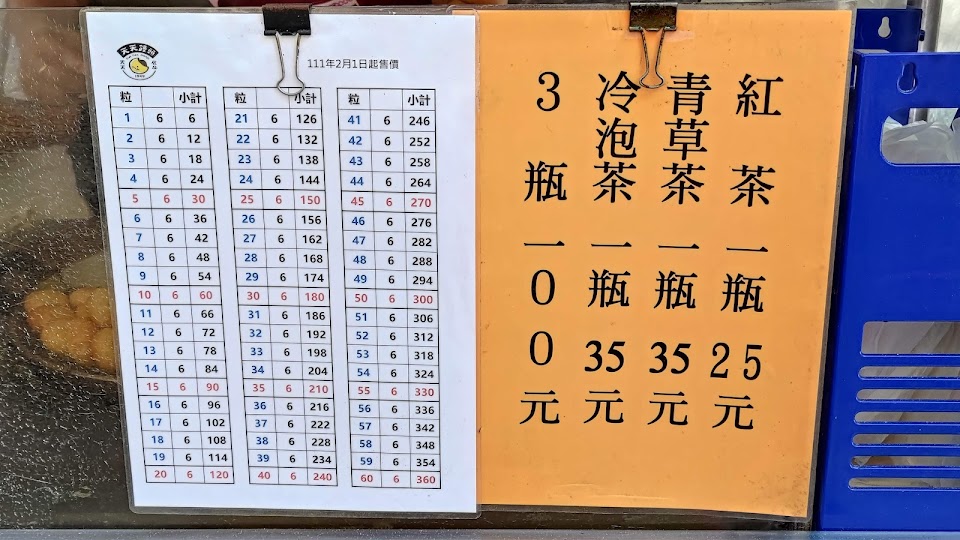 天天饅頭
111年2月1日起售價
粒 小計
1 6 6
2 6 12
3 6 18
4 6 24
5 6 30
6 6 36
7 6 42
8 6 48
9 6 54
10 6 60
11 6 66
12 6 72
13 6 78
14 6 84
15 6 90
16 6 96
17 6 102
18 6 108
19 6 114
20 6 120
粒 小計
21 6 126
22 6 132
23 6 138
24 6 144
25 6 150
26 6 156
27 6 162
28 6 168
29 6 174
30 6 180
31 6 186
32 6 192
33 6 198
34 6 204
35 6 210
36 6 216
37 6 222
38 6 228
39 6 234
40 6 240
粒 小計
41 6 246
42 6 252
43 6 258
44 6 264
45 6 270
46 6 276
47 6 282
48 6 288
49 6 294
50 6 300
51 6 306
52 6 312
53 6 318
54 6 324
55 6 330
56 6 336
57 6 342
58 6 348
59 6 354
60 6 360
紅茶一瓶25元
青草茶一瓶35元
冷泡茶一瓶35元
3瓶一00元